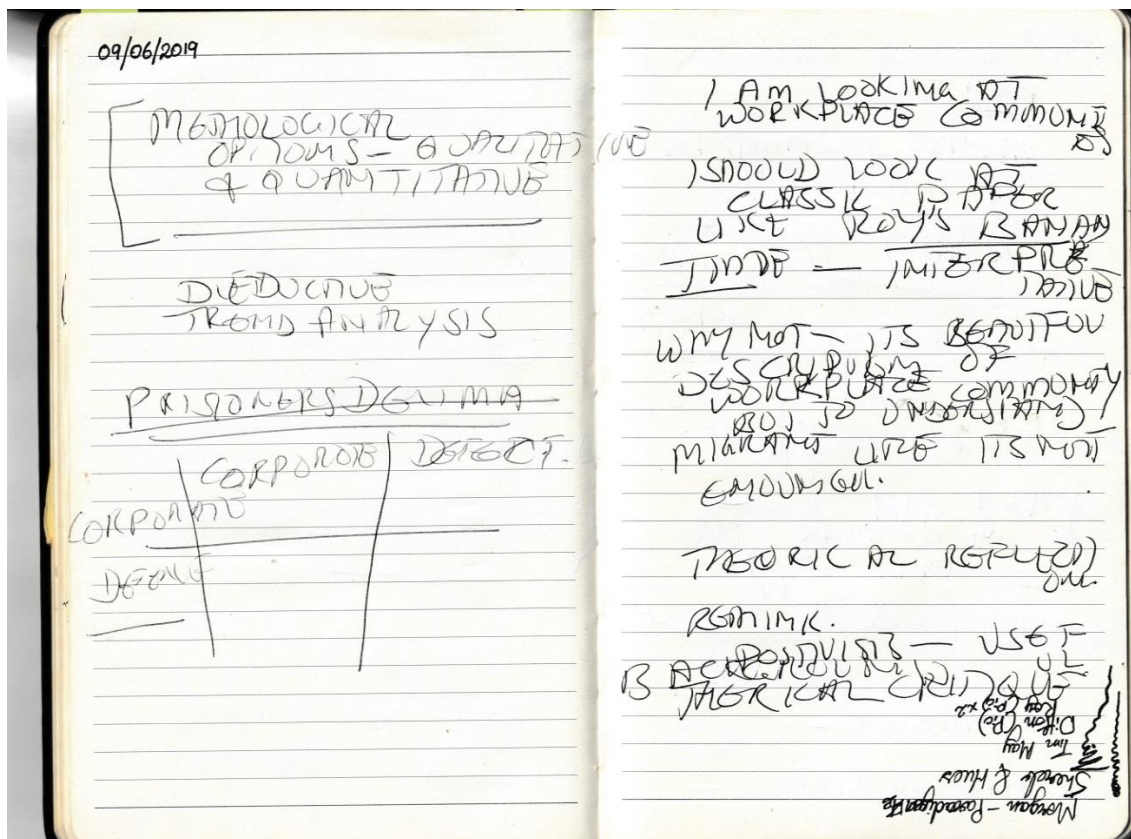 09/06/2019
METHOLOGICAL
OPITOMS – QUALITATIVE
& QUANTITATIVE
DIEDUCTIVE
TREND ANALYSIS
PRISIONERS DELIMA
CORPORATE DEFECT.
CORPORATE
I AM LOOKING AT
WORKPLACE COMMUNITI
ES
I SHOULD LOOK AT
CLASSIC PAPER
LIKE ROY'S BANAN
A
TIME — INTERPRE
TATIVE
WHY NOT – ITS BEAUTIFUL
DESCRIPTION OF
WORKPLACE COMMUNITY
BUT TO UNDERSTAND
MIGRANT LIFE ITS NOT
THEORICAL REFLECTI
ON.
RETHINK.
POSITIVISTS — USEF
UL
BACKGROUND
THERICAL CRITQUE
Morgan – Paradigm
Tim May
Ditton (Pic)
Roy (Pic) x2